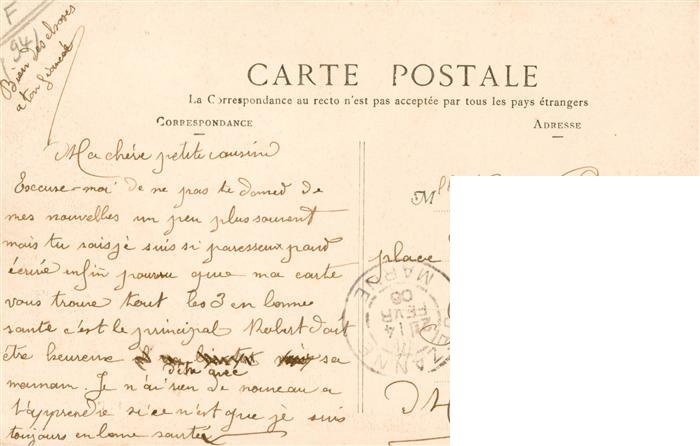 F
(94)
Bien des choses
a ton fiancé
CARTE POSTALE
La Correspondance au recto n'est pas acceptée par tous les pays étrangers
CORRESPONDANCE
ADRESSE
Ma chère petite cousine
Excuse-moi de ne pas te donné de
mes nouvelles un peu plus souvent
mais tu sais je suis si paresseux pour
écrire enfin pourvu que ma carte
vous trouve tout les 3 en bonne
santé c'est le principal Robert doit
être heureux sa
d'être avec
maman. Je n'ai rien de nouveau a
t'apprendre si ce n'est que je suis
toujours en bonne santé
Mlle
place
MARNE
14
FEVR
06